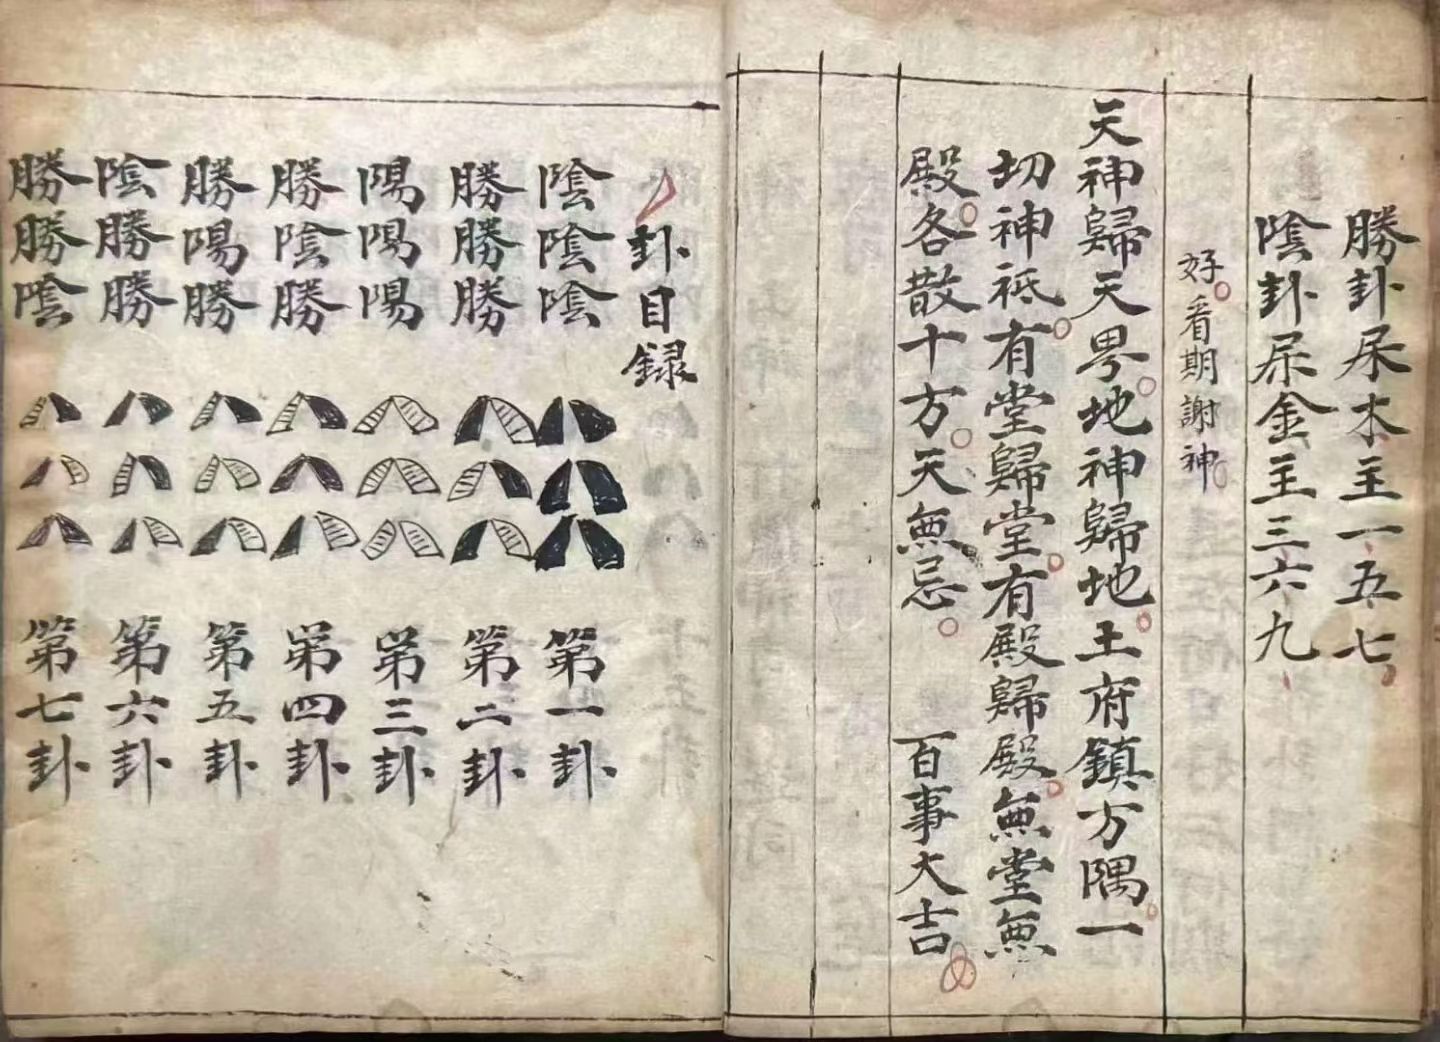 勝卦屎木主一五七
陰卦屎金主三六九
好看期謝神
天神歸天界地神歸地土府鎮方隅一
切神祗有堂歸堂有殿歸殿無堂無
殿各散十方天無忌 百事大吉
卦目録
陰陰陰 第一卦
勝勝勝 第二卦
陽陽陽 第三卦
勝陰勝 第四卦
勝陽勝 第五卦
陰勝勝 第六卦
勝勝陰 第七卦